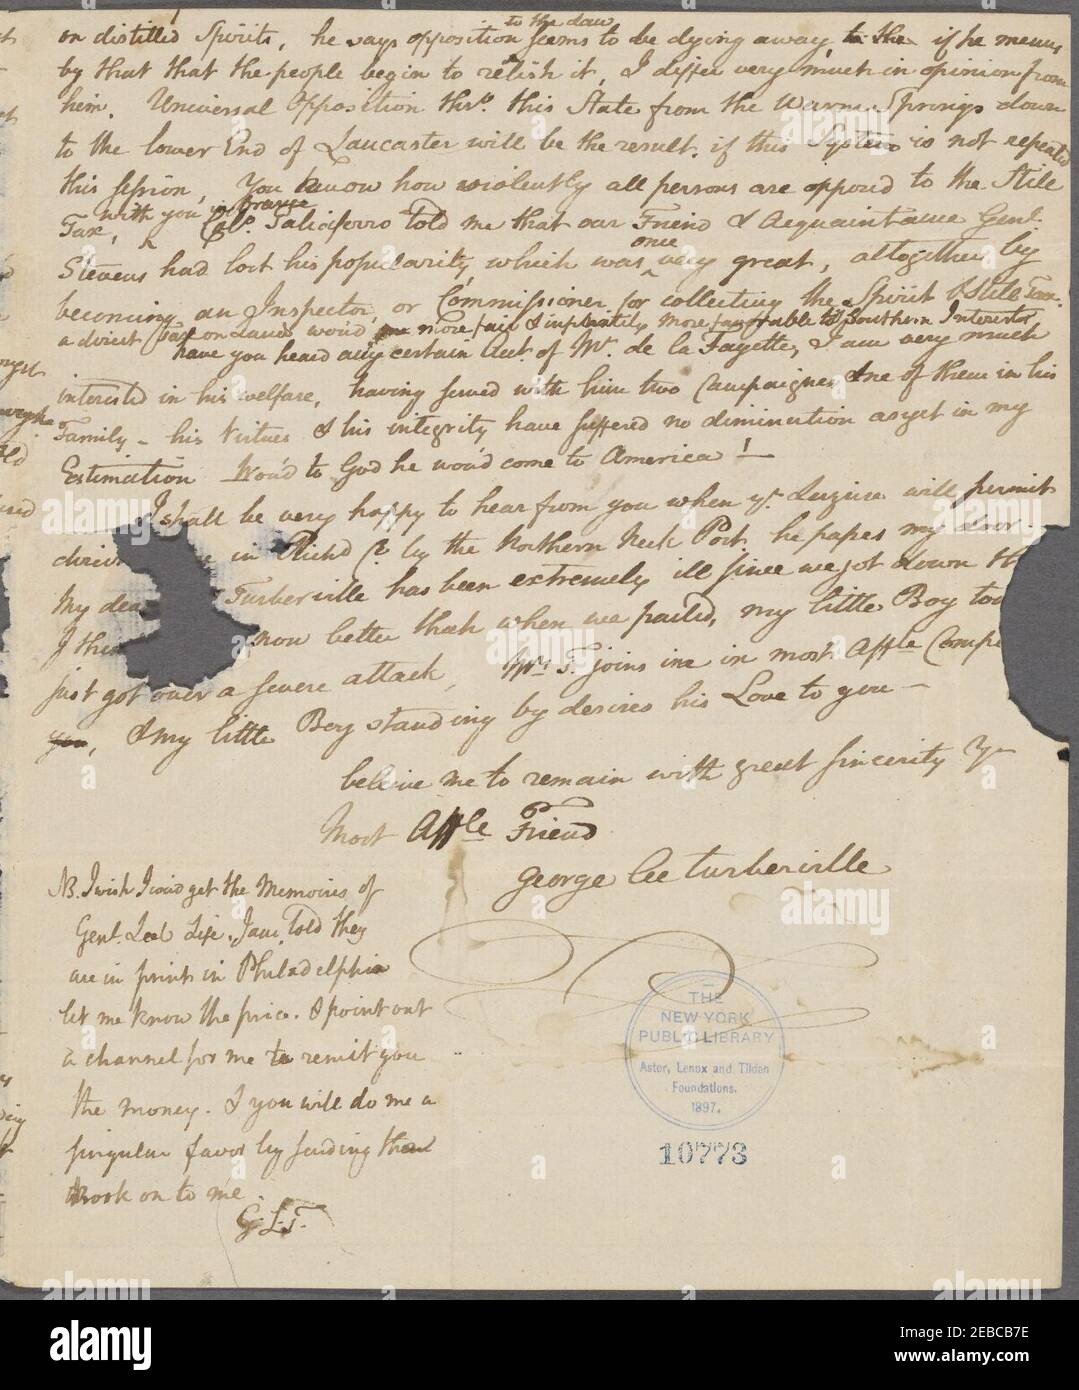 on distilled Spirits, he says opposition to the Law seems to be dying away, to the if he means
by that that the people begin to relish it, I differ very much in opinion from
him. Universal Opposition thro. this State from the Warm Springs down
to the lower End of Lancaster will be the result. if this System is not repealed
this session, You know how violently all persons are opposed to the Still
Tax, with you in Orange Colo. Taliaferro told me that our Friend & Acquaintance Genl.
Stevens had lost his popularity, which was once very great, altogether by
becoming an Inspector, or Commissioner for collecting the Spirit & Still Tax.
a direct Tax on Lands wou'd more fair & infinitely more favorable to Southern Interests
have you heard any certain Acct. of Mr. de la Fayette, I am very much
interested in his welfare, having served with him two Campaignes, & one of them in his
Family - his Virtues & his integrity have suffered no diminution as yet in my
Estimation Wou'd to God he wou'd come to America! —
I shall be very happy to hear from you when yr. Leizure will permit
in Richd by the Northern Neck Post. he passes my door.
My dea Turberville has been extremely ill since we got down th
I thi now better than when we parted, my little Boy too
just got over a severe attack, Mrs. T. joins me in most Affle Compe
you, & my little Boy standing by desires his Love to you —
believe me to remain with great sincerity Yr
Most Affle Friend
George Lee Turberville
NB. I wish I cou'd get the Memoires of
Genl. Lees Life. I am told they
are in print in Philadelphia
let me know the price. & point out
a channel for me to remit you
the money. & you will do me a
singular favor by sending them
Book on to me.
G. L. T.
THE
NEW YORK
PUBLIC LIBRARY
Astor, Lenox and Tilden
Foundations.
1897.
10773
alamy
a
Image ID: 2EBCB7E
www.alamy.com